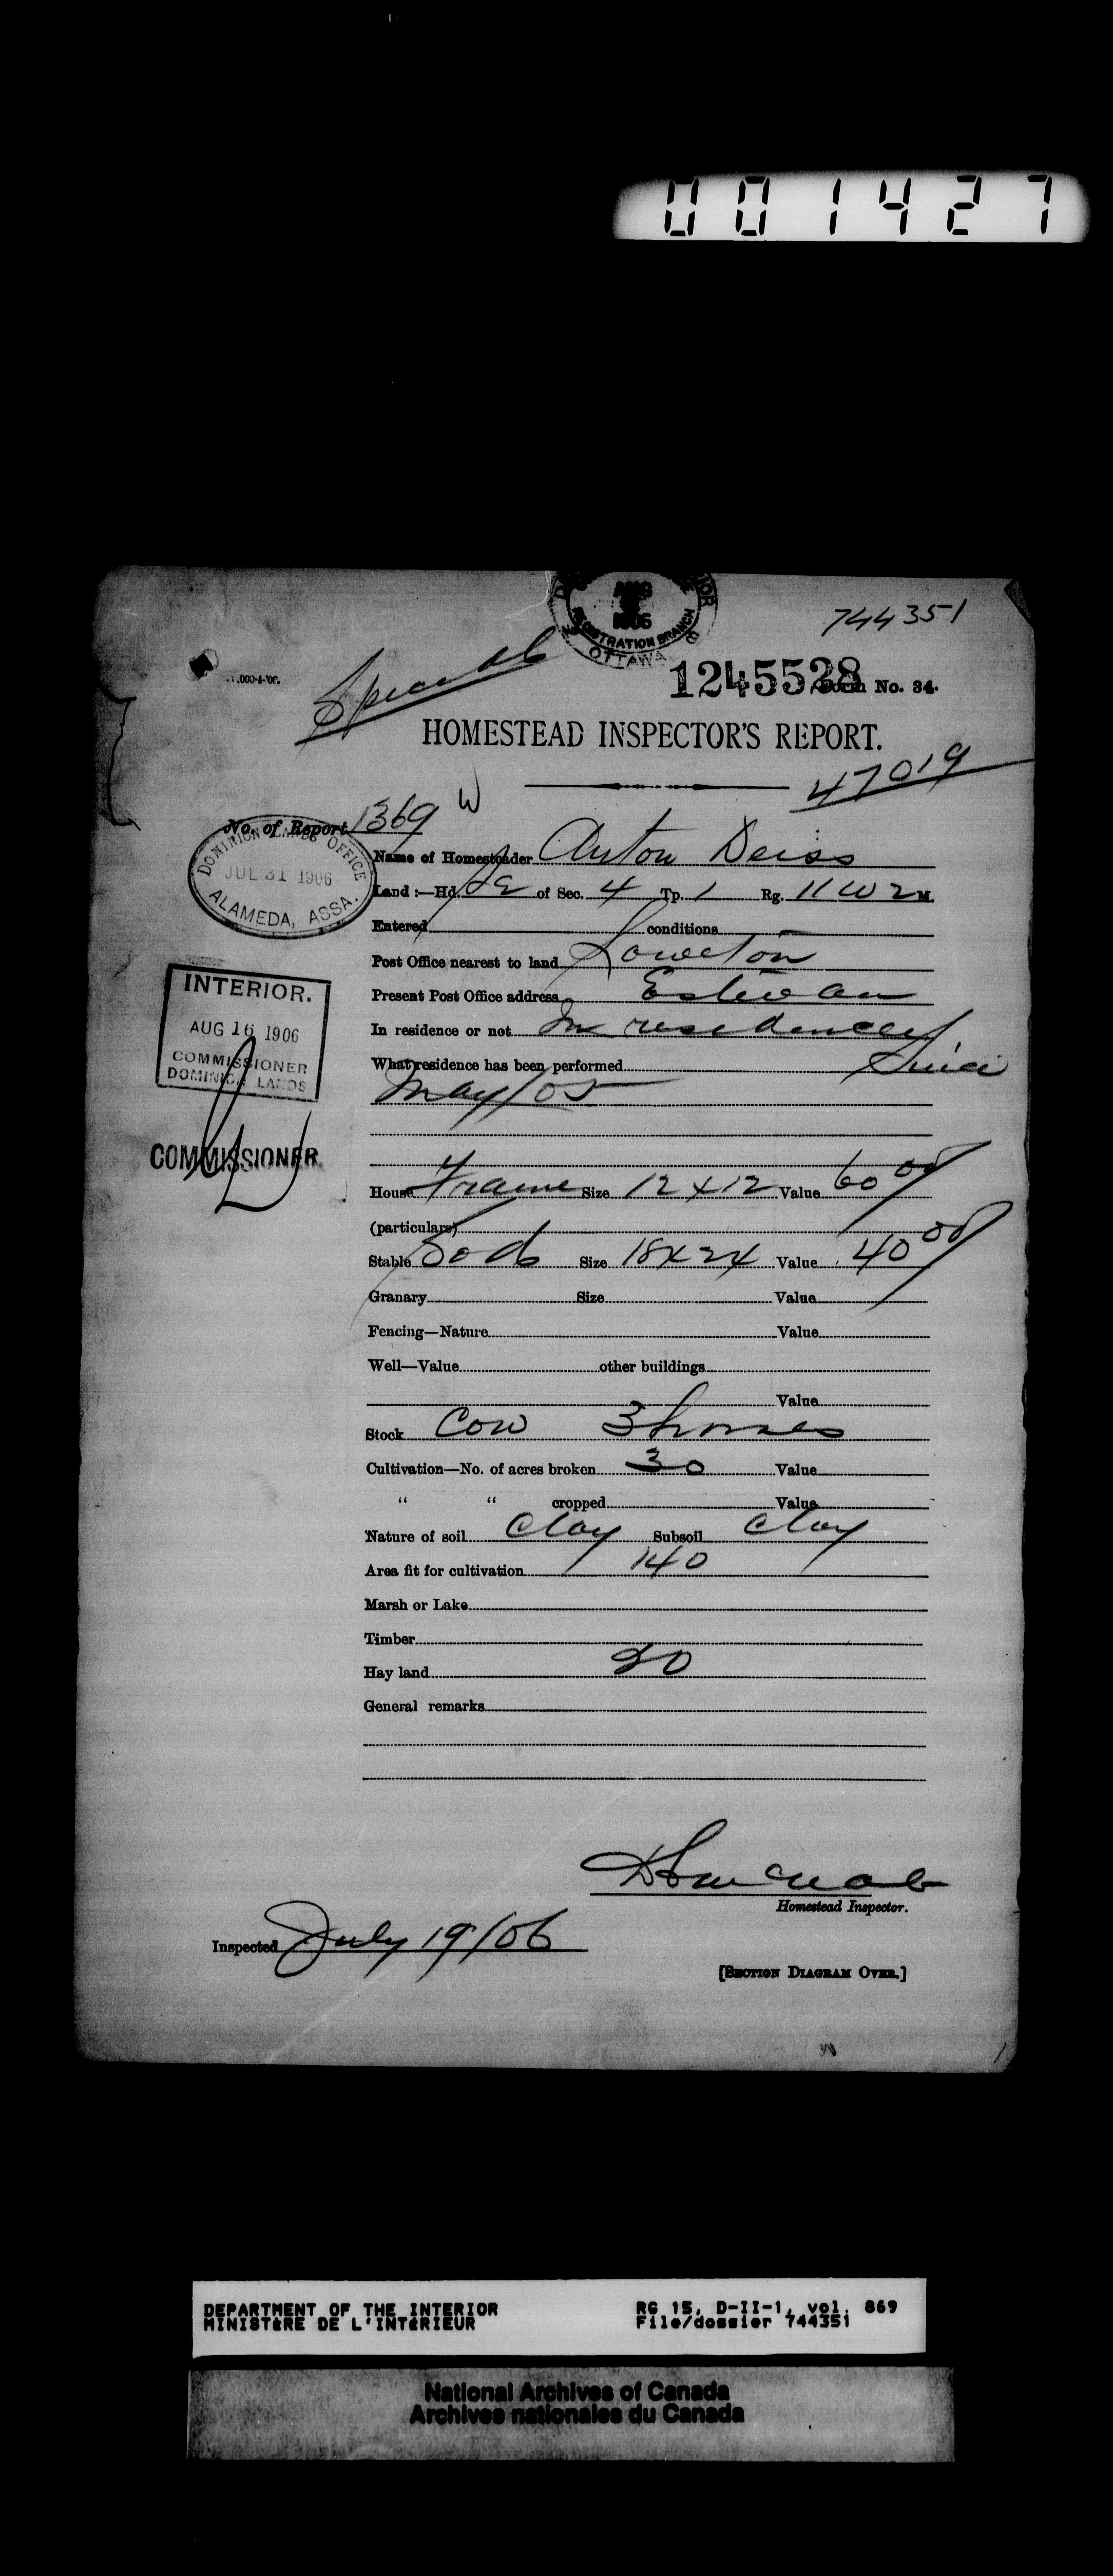 001427
AUG
1906
REGISTRATION BRANCH
OTTAWA
744351
Special
1245528
Form No. 34.
HOMESTEAD INSPECTOR'S REPORT.
47019
W
No. of Report 1369
DOMINION LANDS OFFICE
JUL 31 1906
ALAMEDA, ASSA.
Name of Homesteader Anton Deiss
Land:—Hd. of Sec. 4 Tp. 1 Rg. 11 W 2 M.
Entered conditions
Post Office nearest to land
Present Post Office address Estevan
INTERIOR.
AUG 16 1906
COMMISSIONER
DOMINION LANDS
In residence or not In residence
What residence has been performed Since
May/05
COMMISSIONER
House Frame Size 12 x 12 Value 60 00
(particulars)
Stable Sod Size 18 x 24 Value 40 00
Granary Size Value
Fencing—Nature Value
Well—Value other buildings
Value
Stock Cow 3 horses
Cultivation—No. of acres broken 30 Value
" " cropped Value
Nature of soil Clay Subsoil Clay
Area fit for cultivation 140
Marsh or Lake
Timber
Hay land 20
General remarks
Homestead Inspector.
Inspected July 19/06
[SECTION DIAGRAM OVER.]
DEPARTMENT OF THE INTERIOR
MINISTÈRE DE L'INTÉRIEUR
RG 15, D-II-1, vol. 869
File/dossier 744351
National Archives of Canada
Archives nationales du Canada